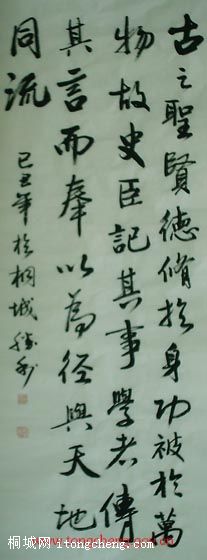 古之聖賢德脩於身功被於萬
物故史臣記其事學者傳
其言而奉以為徑與天地
同流
己丑年於桐城
桐城网 itongcheng.com